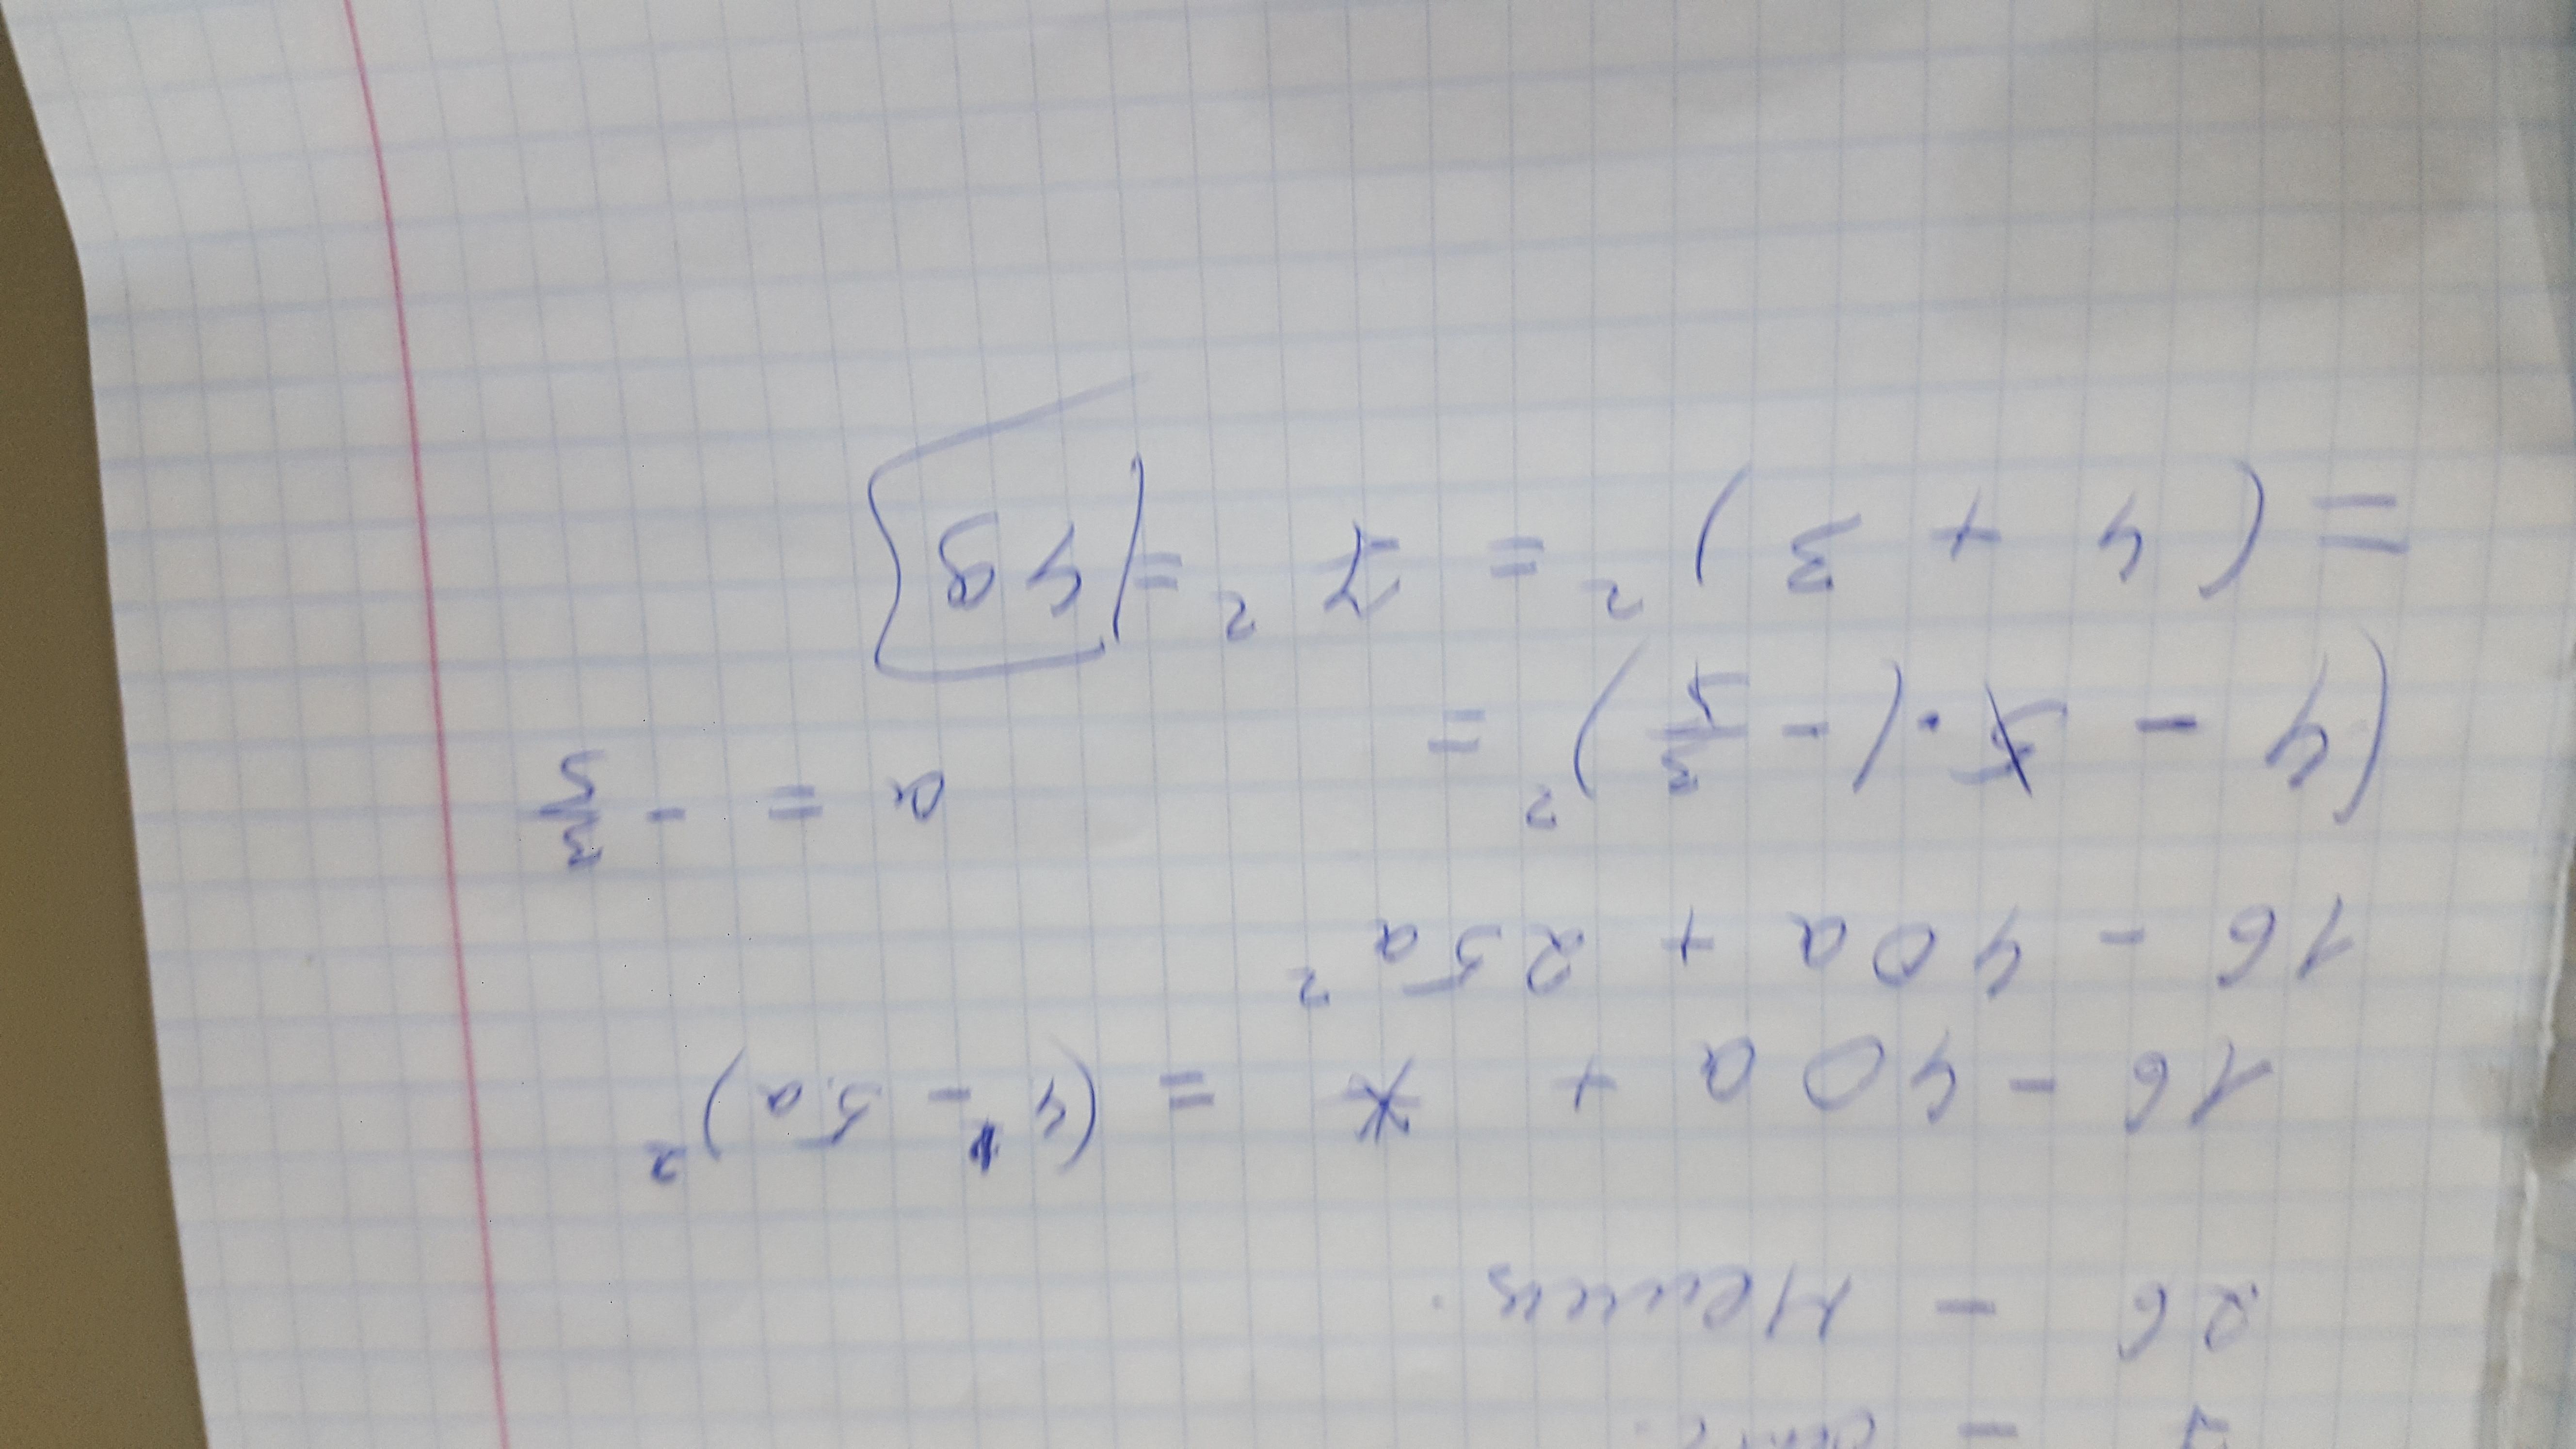 26 -
16 - 40a + * = (4 - 5a)²
16 - 40a + 25a²
a = - 3/5
(4 - 5 · (- 3/5)² =
= (4 + 3)² = 7² = 49